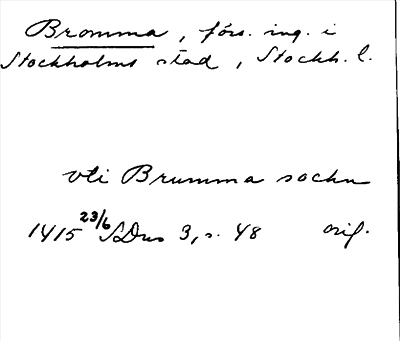 Bromma, förs. ing. i
Stockholms stad, Stockh. l.
vti Brumma sochn
1415 23/6 SDns 3, s. 48 orig.